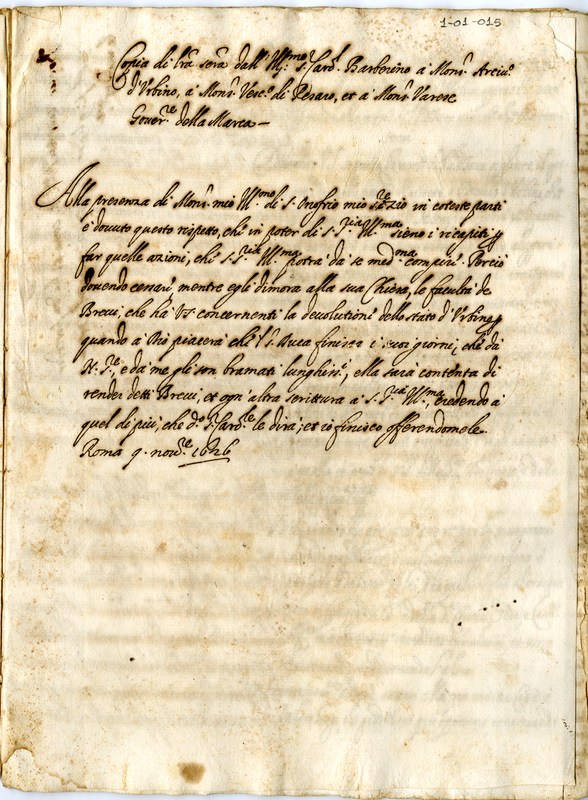 1-01-015
Copia di lr̃a scrã dall' Ill.mo S.r Card.l Barberino à Mons.r Arciu.o
d'Vrbino, à Mons.r Vesc.o di Pesaro, et à Mons.r Varese
Gouer.re della Marca —
Alla presenza di Mons.r mio Ill.mo di S. Onofrio mio S.re e Zio in coteste parti
è douuto questo rispetto, che in poter di S. S.ria Ill.ma sieno i ricapiti p̱
far quelle azioni, che S. S.ria Ill.ma potrà da se med.ma compire. Perciò
douendo cessare mentre egli dimora alla sua Chiesa, le facultà de
Breui, che hà VS concernenti la deuolutione dello stato d'Vrbino, p̱
quando à Dio piacerà che 'l S. Duca finisca i suoi giorni, che da
N. S.re, e da me gli son bramati lunghiss.i, ella sarà contenta di
render detti Breui, et ogn'altra scrittura à S. S.ria Ill.ma, credendo à
quel di più, che d.o S.r Card.le le dirà; et io finisco offerendomele.
Roma 9. nou.re 1626